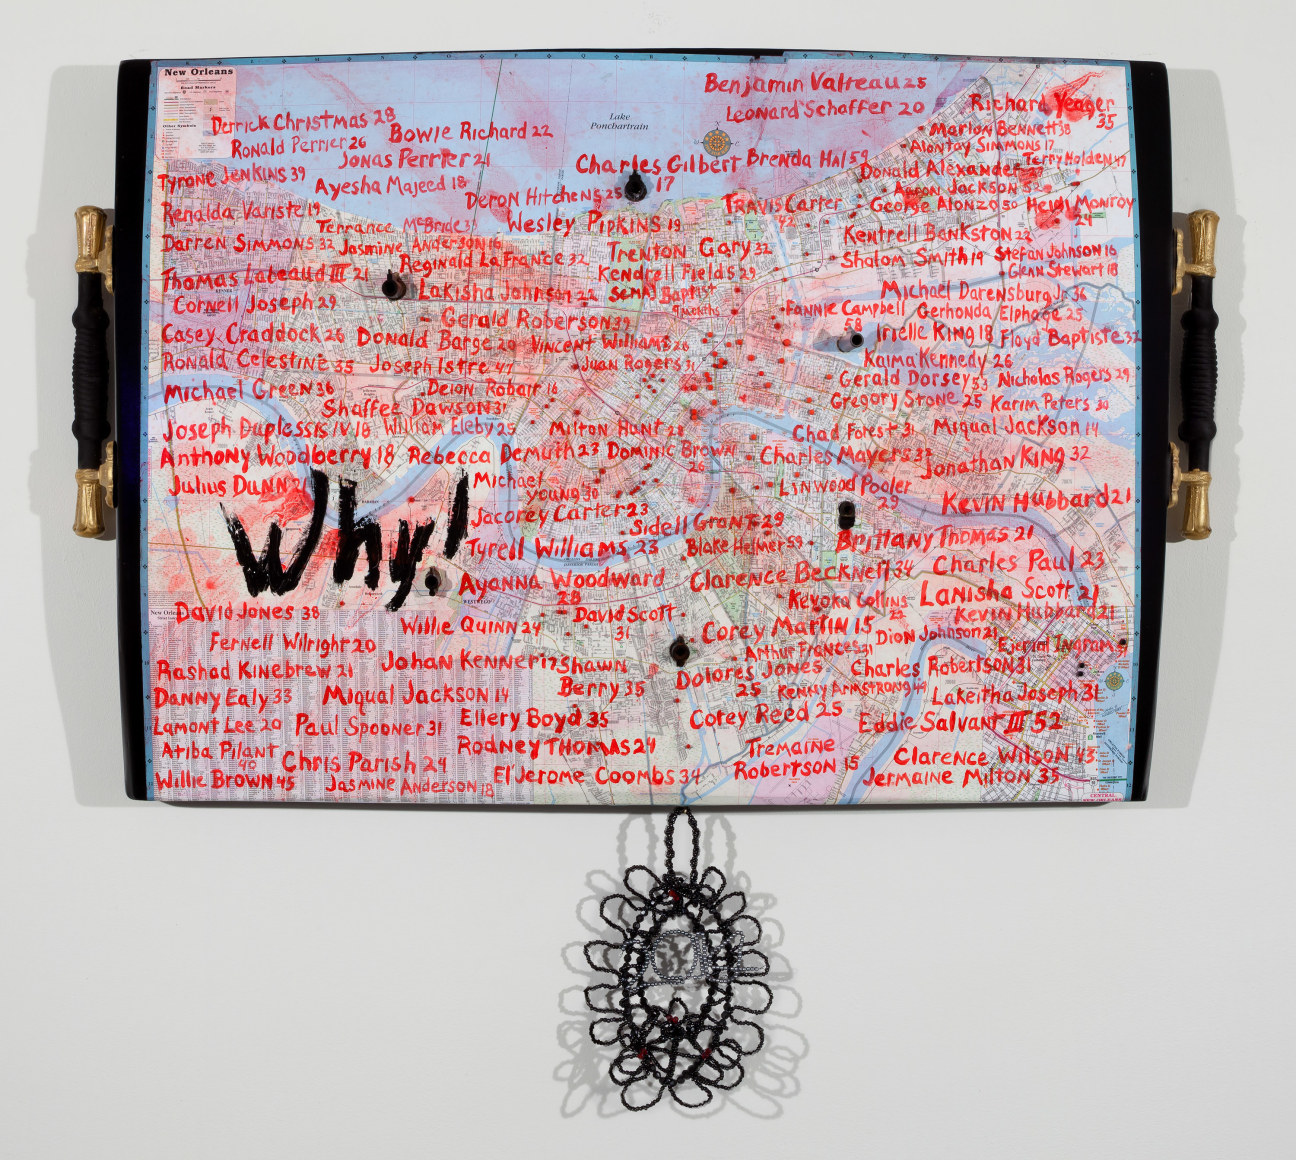 New Orleans
Road Markers
Other Symbols
Lake
Ponchartrain
Benjamin Valteau 25
Leonard Schaffer 20
Richard Yeager
35
Derrick Christmas 28
Bowie Richard 22
Marlon Bennett 38
Ronald Perrier 26
Alontay Simmons 17
Jonas Perrier 21
Charles Gilbert
17
Brenda Hal 59
Terry Holden 47
Tyrone Jenkins 39
Ayesha Majeed 18
Donald Alexander 27
Deron Hitchens 25
Aaron Jackson 52
Travis Carter
42
George Alonzo 50
Heidi Monroy
24
Renalda Variste 19
Terrance McBride 31
Wesley Pipkins 19
Kentrell Bankston 22
Darren Simmons 32
Jasmine Anderson 16
Trenton Gary 32
Shalom Smith 19
Stefan Johnson 16
Reginald LaFrance 32
Kendrell Fields 29
Glenn Stewart 18
Thomas Labeaud III 21
Lakisha Johnson 22
Semaj Baptist
9 months
Michael Darensburg Jr. 36
Cornell Joseph 29
Gerald Roberson 39
Fannie Campbell
58
Gerhonda Elphage 25
Casey Craddock 26
Donald Barge 29
Vincent Williams 26
Irielle King 18
Floyd Baptiste 32
Ronald Celestine 35
Joseph Istre 47
Juan Rogers 31
Kaima Kennedy 26
Michael Green 36
Deion Robair 16
Gerald Dorsey 53
Nicholas Rogers 29
Shaffee Dawson 31
Gregory Stone 25
Karim Peters 30
Joseph Duplessis IV 18
William Eleby 25
Milton Hunt 28
Chad Forest 31
Miqual Jackson 14
Anthony Woodberry 18
Rebecca Demuth 23
Dominic Brown
26
Charles Mayers 37
Jonathan King 32
Julius Dunn 21
Michael
Young 30
Linwood Pooler
29
Kevin Hubbard 21
Why!
Jacorey Carter 23
Sidell Grant 29
Tyrell Williams 23
Blake Helmer 53
Brittany Thomas 21
Ayanna Woodward
28
Clarence Becknell 34
Charles Paul 23
Keyoka Collins
22
Lanisha Scott 21
Kevin Hubbard 21
David Jones 38
Willie Quinn 24
David Scott
31
Corey Martin 15
Dion Johnson 21
Fernell Wilright 20
Arthur Frances 31
Ejerial Ingram 31
Rashad Kinebrew 21
Johan Kenner 17
Shawn
Berry 35
Dolores Jones
25
Charles Robertson 31
Danny Ealy 33
Miqual Jackson 14
Kenny Armstrong 49
Lakeitha Joseph 31
Lamont Lee 20
Paul Spooner 31
Ellery Boyd 35
Corey Reed 25
Eddie Salvant III 52
Atiba Pilant
40
Chris Parish 24
Rodney Thomas 24
Tremaine
Robertson 15
Clarence Wilson 43
Willie Brown 45
Jasmine Anderson 18
El'Jerome Coombs 34
Jermaine Milton 35